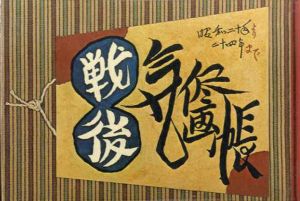 昭和二十年より
二十四年まで
戦後
気侭画帳